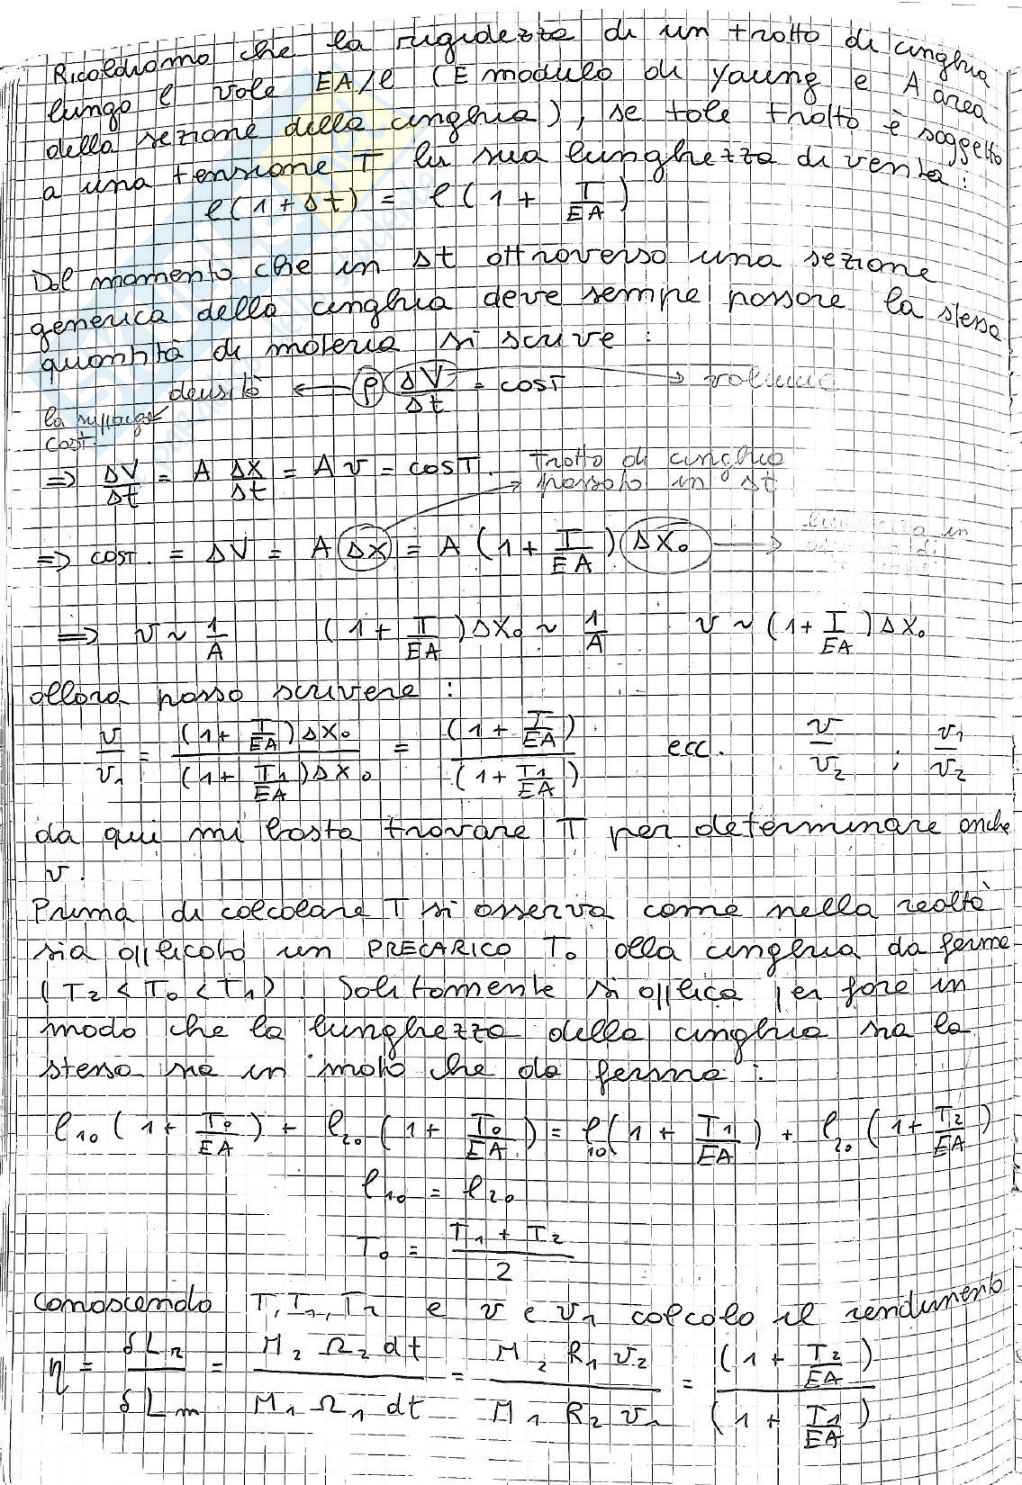 Ricordiamo che la rigidezza di un tratto di cinghia
lungo l vale EA/l (E modulo di young e A area
della sezione della cinghia), se tale tratto è soggetto
a una tensione T la sua lunghezza diventa:
l(1+Δt) = l(1 + T/EA)
Dal momento che in Δt attraverso una sezione
generica della cinghia deve sempre passare la stessa
quantità di materia si scrive :
densità ← ρ ΔV/Δt = cost → volume
la suppongo
cost.
⇒ ΔV/Δt = A Δx/Δt = A v = cost. Tratto di cinghia
passato in Δt
⇒ cost. = ΔV = A Δx = A (1 + T/EA) Δx₀ →
⇒ v ~ 1/A (1 + T/EA) Δx₀ ~ 1/A v ~ (1 + T/EA) Δx₀
allora posso scrivere :
v/v₁ = (1 + T/EA) Δx₀ / (1 + T₁/EA) Δx₀ = (1 + T/EA) / (1 + T₁/EA) ecc. v/v₂ ; v₁/v₂
da qui mi basta trovare T per determinare anche
v.
Prima di calcolare T si osserva come nella realtà
sia applicato un PRECARICO T₀ alla cinghia da ferma
(T₂ < T₀ < T₁). Solitamente si applica per fare in
modo che la lunghezza della cinghia sia la
stessa sia in moto che da ferma :
l₁₀ (1 + T₀/EA) + l₂₀ (1 + T₀/EA) = l₁₀ (1 + T₁/EA) + l₂₀ (1 + T₂/EA)
l₁₀ = l₂₀
T₀ = (T₁ + T₂)/2
Conoscendo T, T₁, T₂ e v e v₁ calcolo il rendimento
η = δLr/δLm = M₂ Ω₂ dt / M₁ Ω₁ dt = M₂ R₁ v₂ / M₁ R₂ v₁ = (1 + T₂/EA) / (1 + T₁/EA)